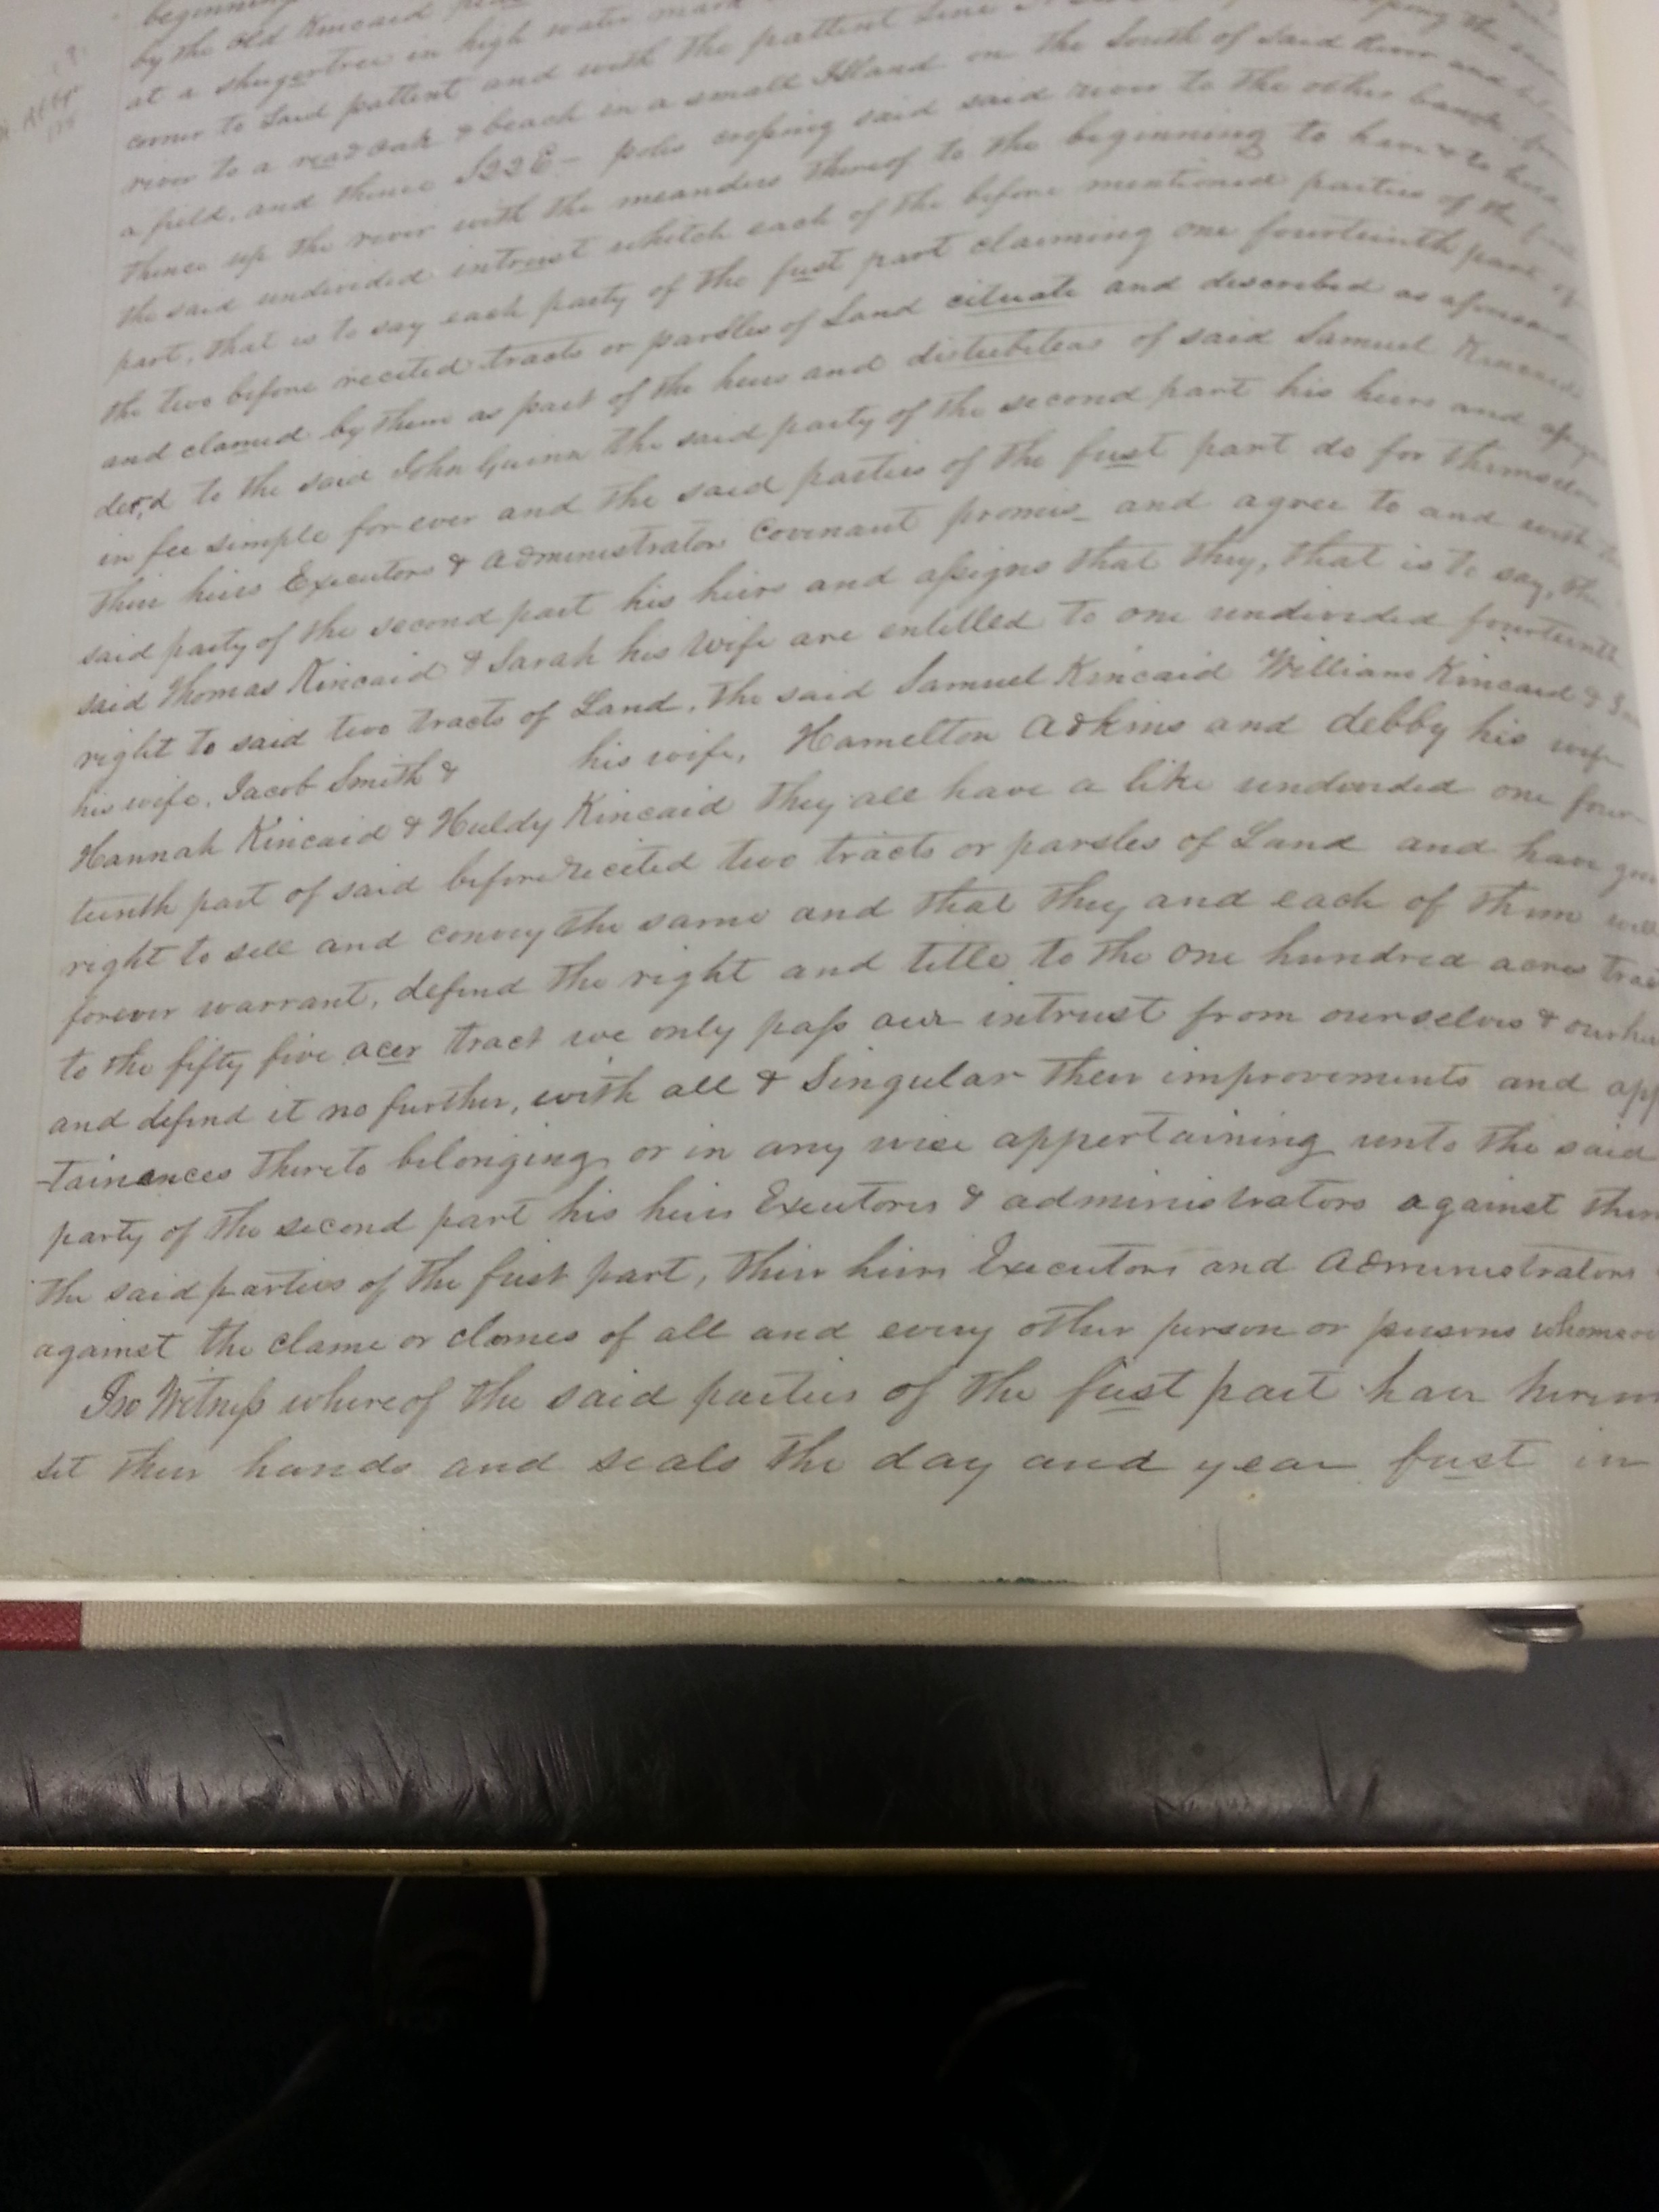 beginning
by the old Kincaid
at a shugertree in high water mark
corner to said pattent and with the pattent line
river to a read oak & beach in a small Island on the South of said River and
a field, and thence S22E - poles crossing said said river to the other bank
thence up the river with the meanders thereof to the beginning to have & to hold
the said undivided intrust whitch each of the before mentioned parties of the first
part, that is to say each party of the fust part claiming one fourteenth part of
the two before recited tracts or parsles of Land cituate and described as aforesaid
and clamed by them as part of the heirs and distubiteas of said Samuel Kincaid
decd to the said John Guinn the said party of the second part his heirs and assigns
in fee simple for ever and the said parties of the fust part do for themselves
thier heirs Executors & administrators Covenant promis- and agree to and with the
said party of the second part his heirs and assigns that they, that is to say, the
said Thomas Kincaid & Sarah his Wife are entilled to one undivided fourteenth
right to said two tracts of Land, the said Samuel Kincaid William Kincaid &
his wife, Jacob Smith & his wife, Hamelton Adkins and debby his wife
Hannah Kincaid & Huldy Kincaid they all have a like undivided one four
teenth part of said before recited two tracts or parsles of Land and have good
right to sell and convey the same and that they and each of them will
forever warrant, defend the right and title to the one hundred acres tract
to the fifty five acer tract we only pass our intrust from ourselves & our
and defend it no further, with all & Singular their improvements and app
-tainances thereto belonging or in any wise appertaining unto the said
party of the second part his heirs Executors & administrators against them
the said parties of the fust part, thier heirs Executors and Administrators
against the clame or clames of all and every other person or persons whomso
In Witness whereof the said parties of the fust part have hereun
set their hands and seals the day and year fust in